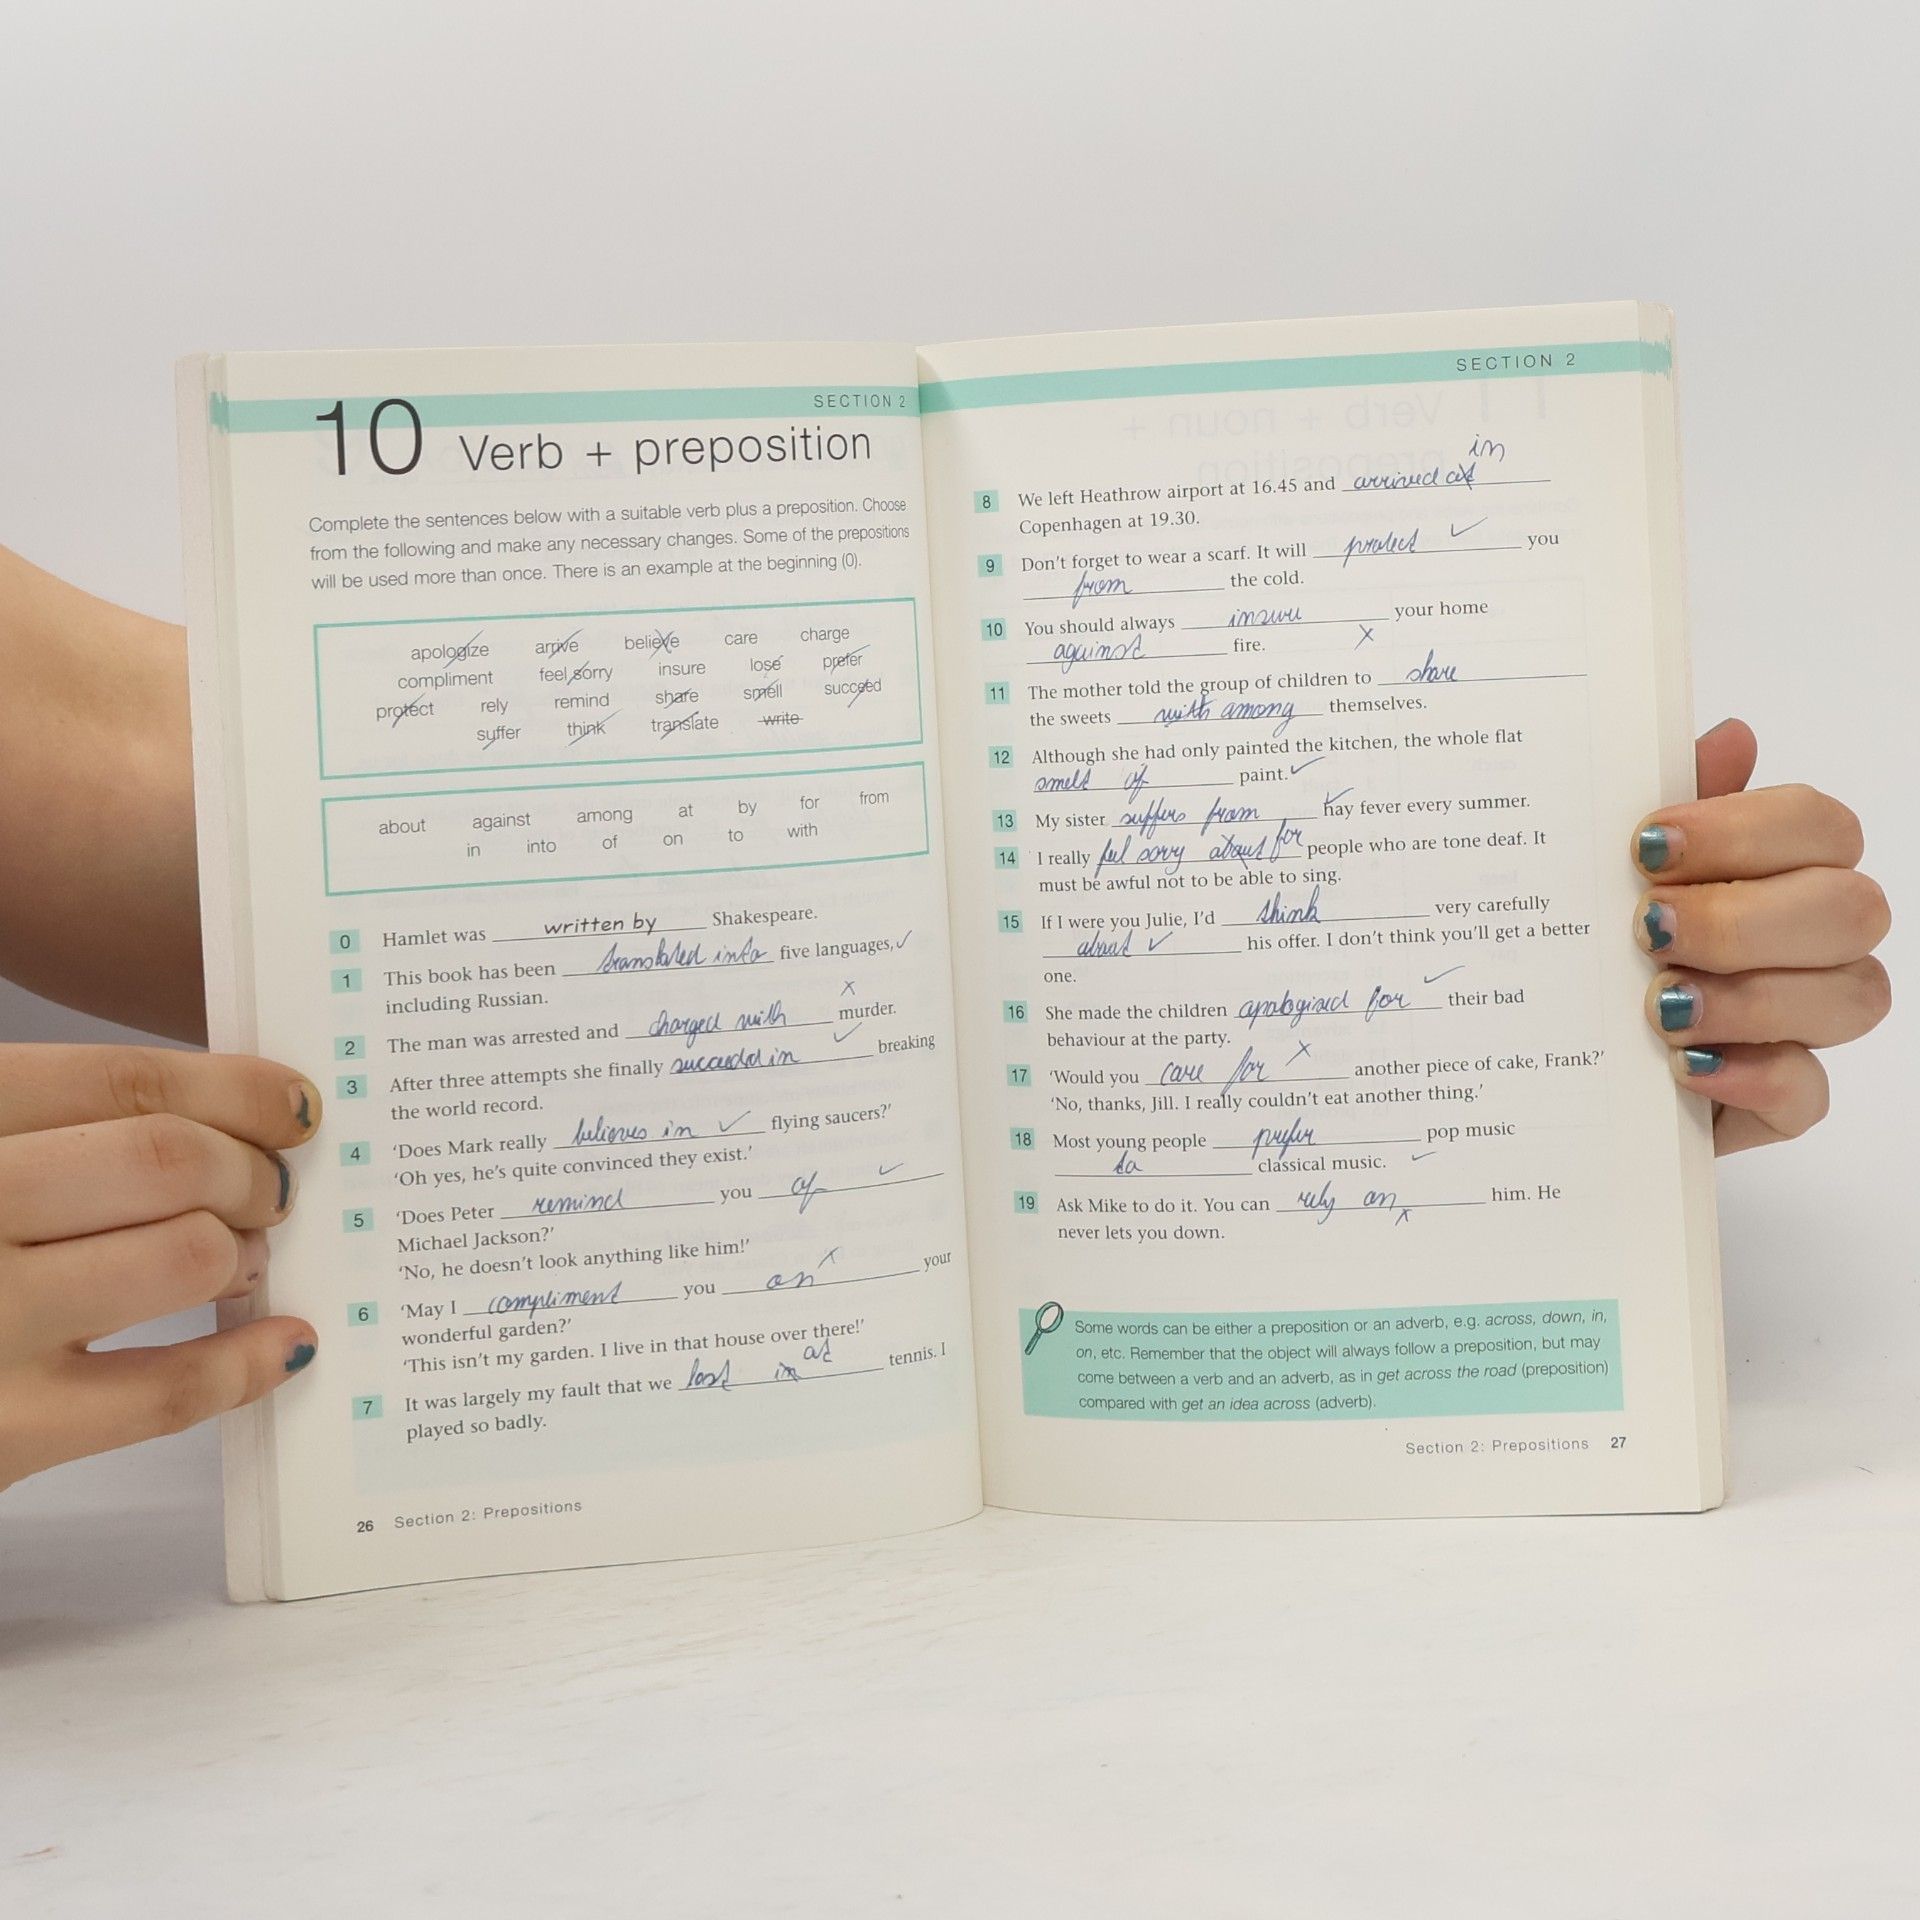 SECTION 2
10 Verb + preposition
Complete the sentences below with a suitable verb plus a preposition. Choose
from the following and make any necessary changes. Some of the prepositions
will be used more than once. There is an example at the beginning (0).
apologize arrive believe care charge
compliment feel sorry insure lose prefer
protect rely remind share smell succeed
suffer think translate write
about against among at by for from
in into of on to with
0 Hamlet was written by Shakespeare.
1 This book has been translated into five languages, ✓
including Russian.
x
2 The man was arrested and charged with murder.
3 After three attempts she finally succeeded in ✓ breaking
the world record.
4 'Does Mark really believes in ✓ flying saucers?'
'Oh yes, he's quite convinced they exist.'
5 'Does Peter remind you of ✓
Michael Jackson?'
'No, he doesn't look anything like him!'
6 'May I compliment you on x your
wonderful garden?'
'This isn't my garden. I live in that house over there!'
at
7 It was largely my fault that we lost in tennis. I
played so badly.
26 Section 2: Prepositions
SECTION 2
in
8 We left Heathrow airport at 16.45 and arrived at
Copenhagen at 19.30.
9 Don't forget to wear a scarf. It will protect ✓ you
from the cold.
10 You should always insure your home
against fire. x
11 The mother told the group of children to share
the sweets with among themselves.
12 Although she had only painted the kitchen, the whole flat
smelt of paint. ✓
13 My sister suffers from ✓ hay fever every summer.
14 I really feel sorry about for people who are tone deaf. It
must be awful not to be able to sing.
15 If I were you Julie, I'd think very carefully
about ✓ his offer. I don't think you'll get a better
one.
16 She made the children apologised for ✓ their bad
behaviour at the party.
17 'Would you care for x another piece of cake, Frank?'
'No, thanks, Jill. I really couldn't eat another thing.'
18 Most young people prefer pop music
to classical music. ✓
19 Ask Mike to do it. You can rely on x him. He
never lets you down.
Some words can be either a preposition or an adverb, e.g. across, down, in,
on, etc. Remember that the object will always follow a preposition, but may
come between a verb and an adverb, as in get across the road (preposition)
compared with get an idea across (adverb).
Section 2: Prepositions 27